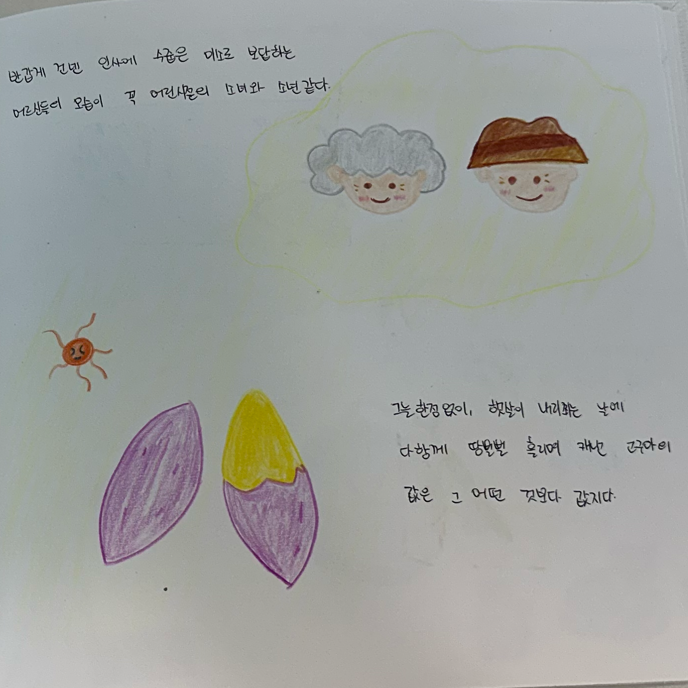 반갑게 건넨 인사에 수줍은 미소로 보답하는
어르신들의 모습이 꼭 어린시절의 소녀와 소년같다.
그늘 한점 없이, 햇살이 내리쬐는 날에
다함께 땀뻘뻘 흘리며 캐낸 고구마의
값은 그 어떤 것보다 값지다.